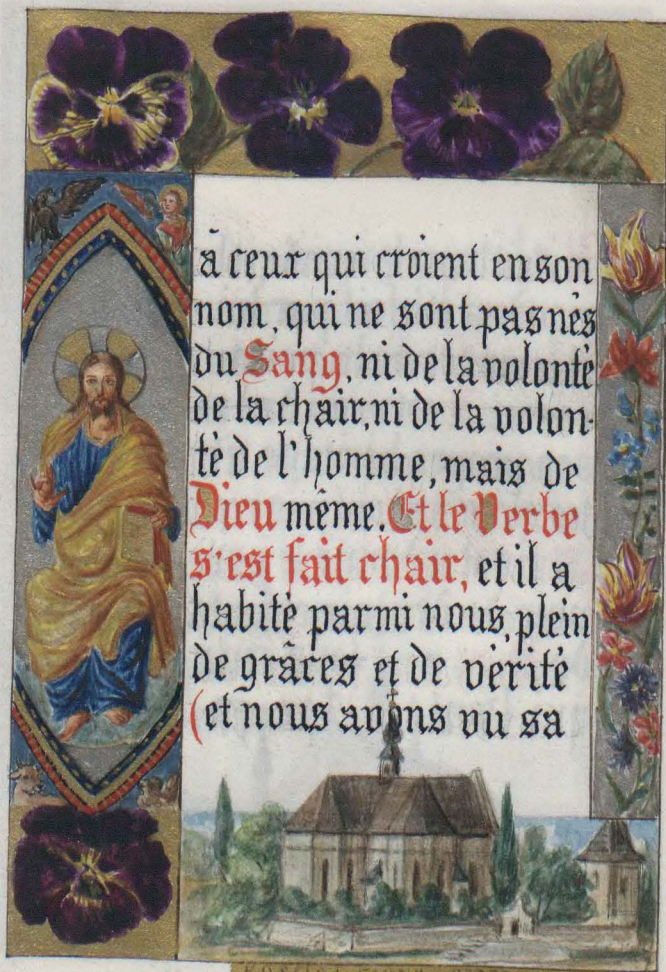 à ceux qui croient en son
nom, qui ne sont pas nés
du Sang, ni de la volonté
de la chair, ni de la volon-
té de l'homme, mais de
Dieu même. Et le Verbe
s'est fait chair, et il a
habité parmi nous, plein
de grâces et de vérité
(et nous avons vu sa